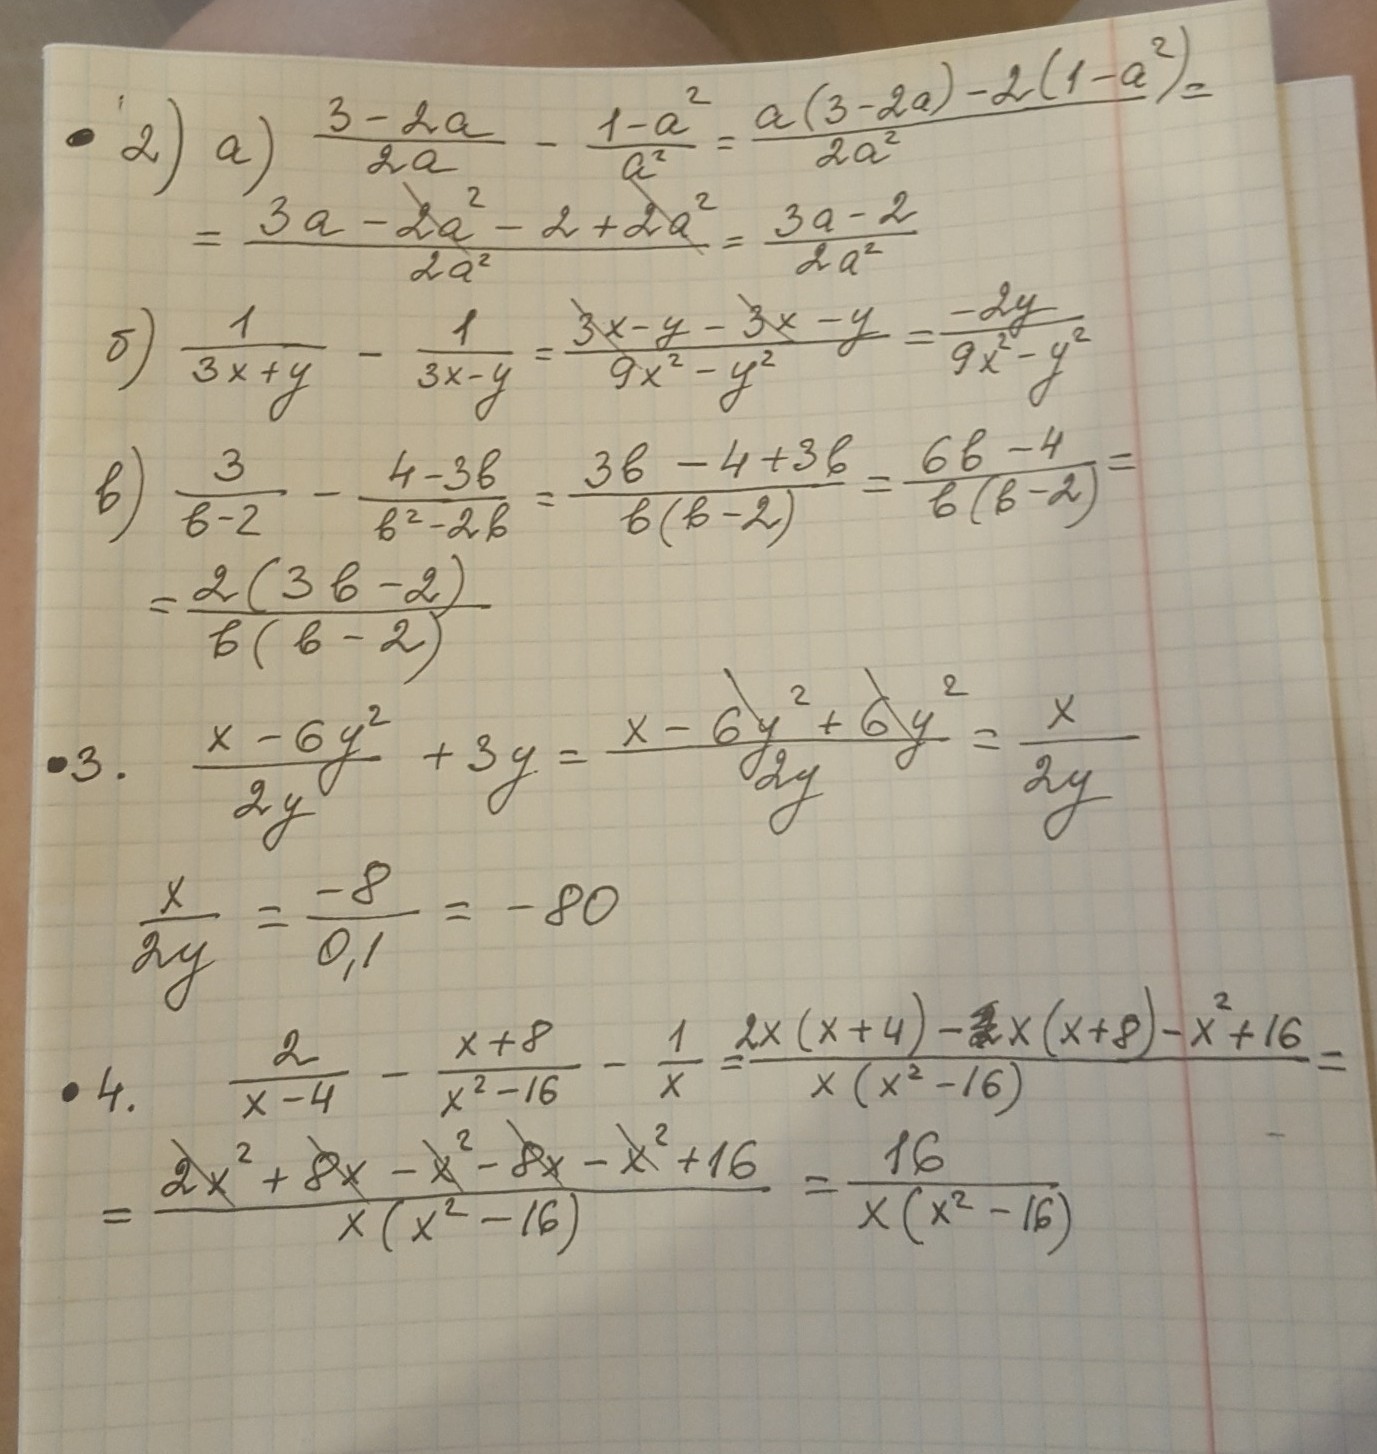 2) а) (3 - 2a)/(2a) - (1-a²)/(a²) = (a(3-2a) - 2(1-a²))/(2a²) =
= (3a - 2a² - 2 + 2a²)/(2a²) = (3a - 2)/(2a²)
б) 1/(3x+y) - 1/(3x-y) = (3x-y - 3x - y)/(9x² - y²) = (-2y)/(9x² - y²)
в) 3/(b-2) - (4-3b)/(b²-2b) = (3b - 4 + 3b)/(b(b-2)) = (6b - 4)/(b(b-2)) =
= (2(3b-2))/(b(b-2))
3. (x - 6y²)/(2y) + 3y = (x - 6y² + 6y²)/(2y) = x/(2y)
x/(2y) = (-8)/(0,1) = -80
4. 2/(x-4) - (x+8)/(x²-16) - 1/x = (2x(x+4) - x(x+8) - x² + 16)/(x(x²-16)) =
= (2x² + 8x - x² - 8x - x² + 16)/(x(x²-16)) = 16/(x(x²-16))